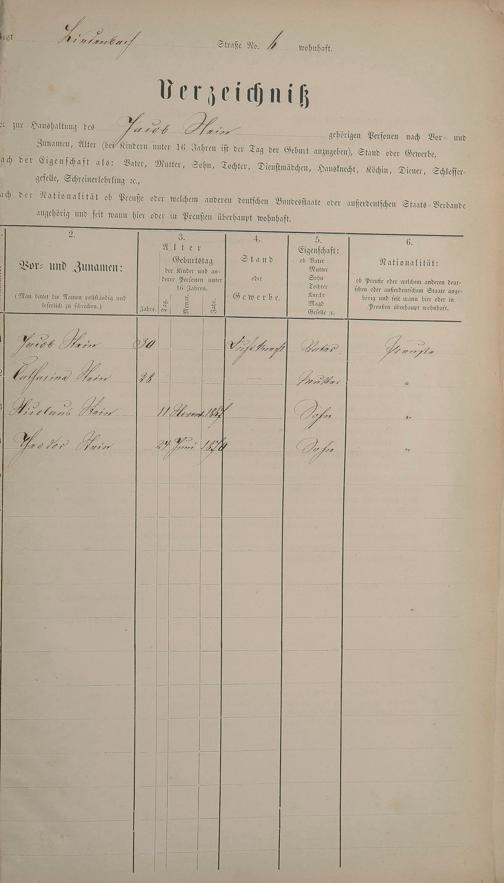 Straße No. 6 wohnhaft.
Verzeichniß
zur Haushaltung des Jacob Stein gehörigen Personen nach Vor- und
Zunamen, Alter (bei Kindern unter 16 Jahren ist der Tag der Geburt anzugeben), Stand oder Gewerbe,
nach der Eigenschaft als: Vater, Mutter, Sohn, Tochter, Dienstmädchen, Hausknecht, Köchin, Diener, Schlosser-
geselle, Schreinerlehrling ꝛc.,
nach der Nationalität ob Preuße oder welchem anderen deutschen Bundesstaate oder außerdeutschen Staats-Verbande
angehörig und seit wann hier oder in Preußen überhaupt wohnhaft.
2. 3. 4. 5. 6.
Vor- und Zunamen:
(Man bittet die Namen vollständig und
leserlich zu schreiben.)
Alter
Geburtstag
der Kinder und an-
derer Personen unter
16 Jahren.
Jahre. Tag. Monat. Jahr.
Stand
oder
Gewerbe.
Eigenschaft:
ob Vater
Mutter
Sohn
Tochter
Knecht
Magd
Geselle ꝛc.
Nationalität:
ob Preuße oder welchem anderen deut-
schen oder außerdeutschen Staate ange-
hörig und seit wann hier oder in
Preußen überhaupt wohnhaft.
Jacob Stein Vater Preuße
Catharina Stein 38 Mutter "
Nicolaus Stein 11 Sohn "
Theodor Stein 27 Juni 1870 Sohn "